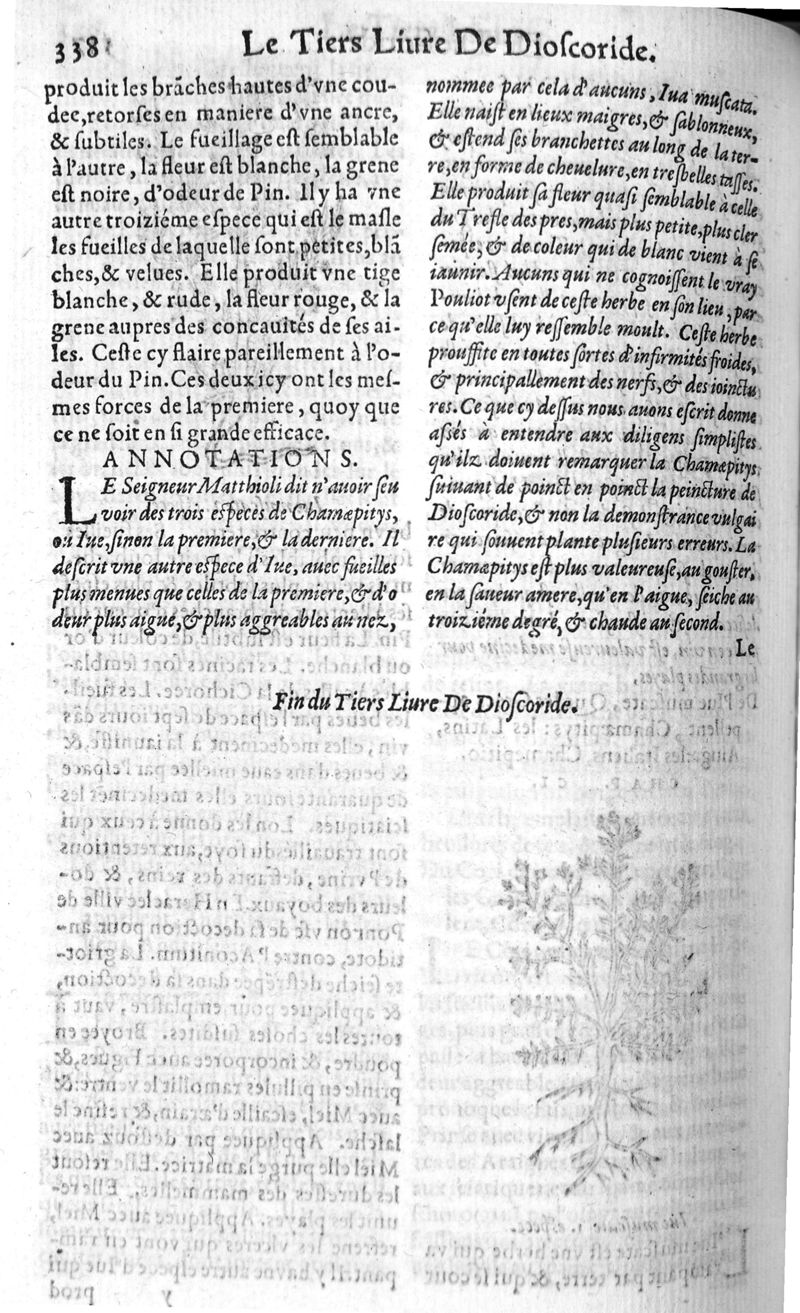 338
Le Tiers Liure De Dioſcoride.
produit les brãches hautes d'vne cou-
dee, retorſes en maniere d'vne ancre,
& ſubtiles. Le fueillage eſt ſemblable
à l'autre, la fleur eſt blanche, la grene
eſt noire, d'odeur de Pin. Il y ha vne
autre troiziéme eſpece qui eſt le maſle
les fueilles de laquelle ſont petites, blã
ches, & velues. Elle produit vne tige
blanche, & rude, la fleur rouge, & la
grene aupres des concauités de ſes ai-
les. Ceſte cy flaire pareillement à l'o-
deur du Pin. Ces deux icy ont les meſ-
mes forces de la premiere, quoy que
ce ne ſoit en ſi grande efficace.
ANNOTATIONS.
LE Seigneur Matthioli dit n'auoir ſeu
voir des trois eſpeces de Chamæpitys,
ou Iue, ſinon la premiere, & la derniere. Il
deſcrit vne autre eſpece d'Iue, auec fueilles
plus menues que celles de la premiere, & d'o
deur plus aigue, & plus aggreables au nez,
nommee par cela d'aucuns, Iua muſcata.
Elle naiſt en lieux maigres, & ſablonneux,
& eſtend ſes branchettes au long de la ter-
re, en forme de cheuelure, en treſbelles taſſes.
Elle produit ſa fleur quaſi ſemblable à celle
du Trefle des pres, mais plus petite, plus cler
ſemée, & de coleur qui de blanc vient à ſe
iaunir. Aucuns qui ne cognoiſſent le vray
Pouliot vſent de ceſte herbe en ſon lieu, par
ce qu'elle luy reſſemble moult. Ceſte herbe
prouffite en toutes ſortes d'infirmités froides,
& principallement des nerfs, & des ioinctu
res. Ce que cy deſſus nous auons eſcrit donne
aſſés à entendre aux diligens ſimpliſtes
qu'ilz doiuent remarquer la Chamæpitys
ſuiuant de poinct en poinct la peincture de
Dioſcoride, & non la demonſtrance vulgai
re qui ſouuent plante pluſieurs erreurs. La
Chamæpitys eſt plus valeureuſe, au gouſter,
en la ſaueur amere, qu'en l'aigue, ſeiche au
troiziéme degré, & chaude au ſecond.
Le
Fin du Tiers Liure De Dioſcoride.